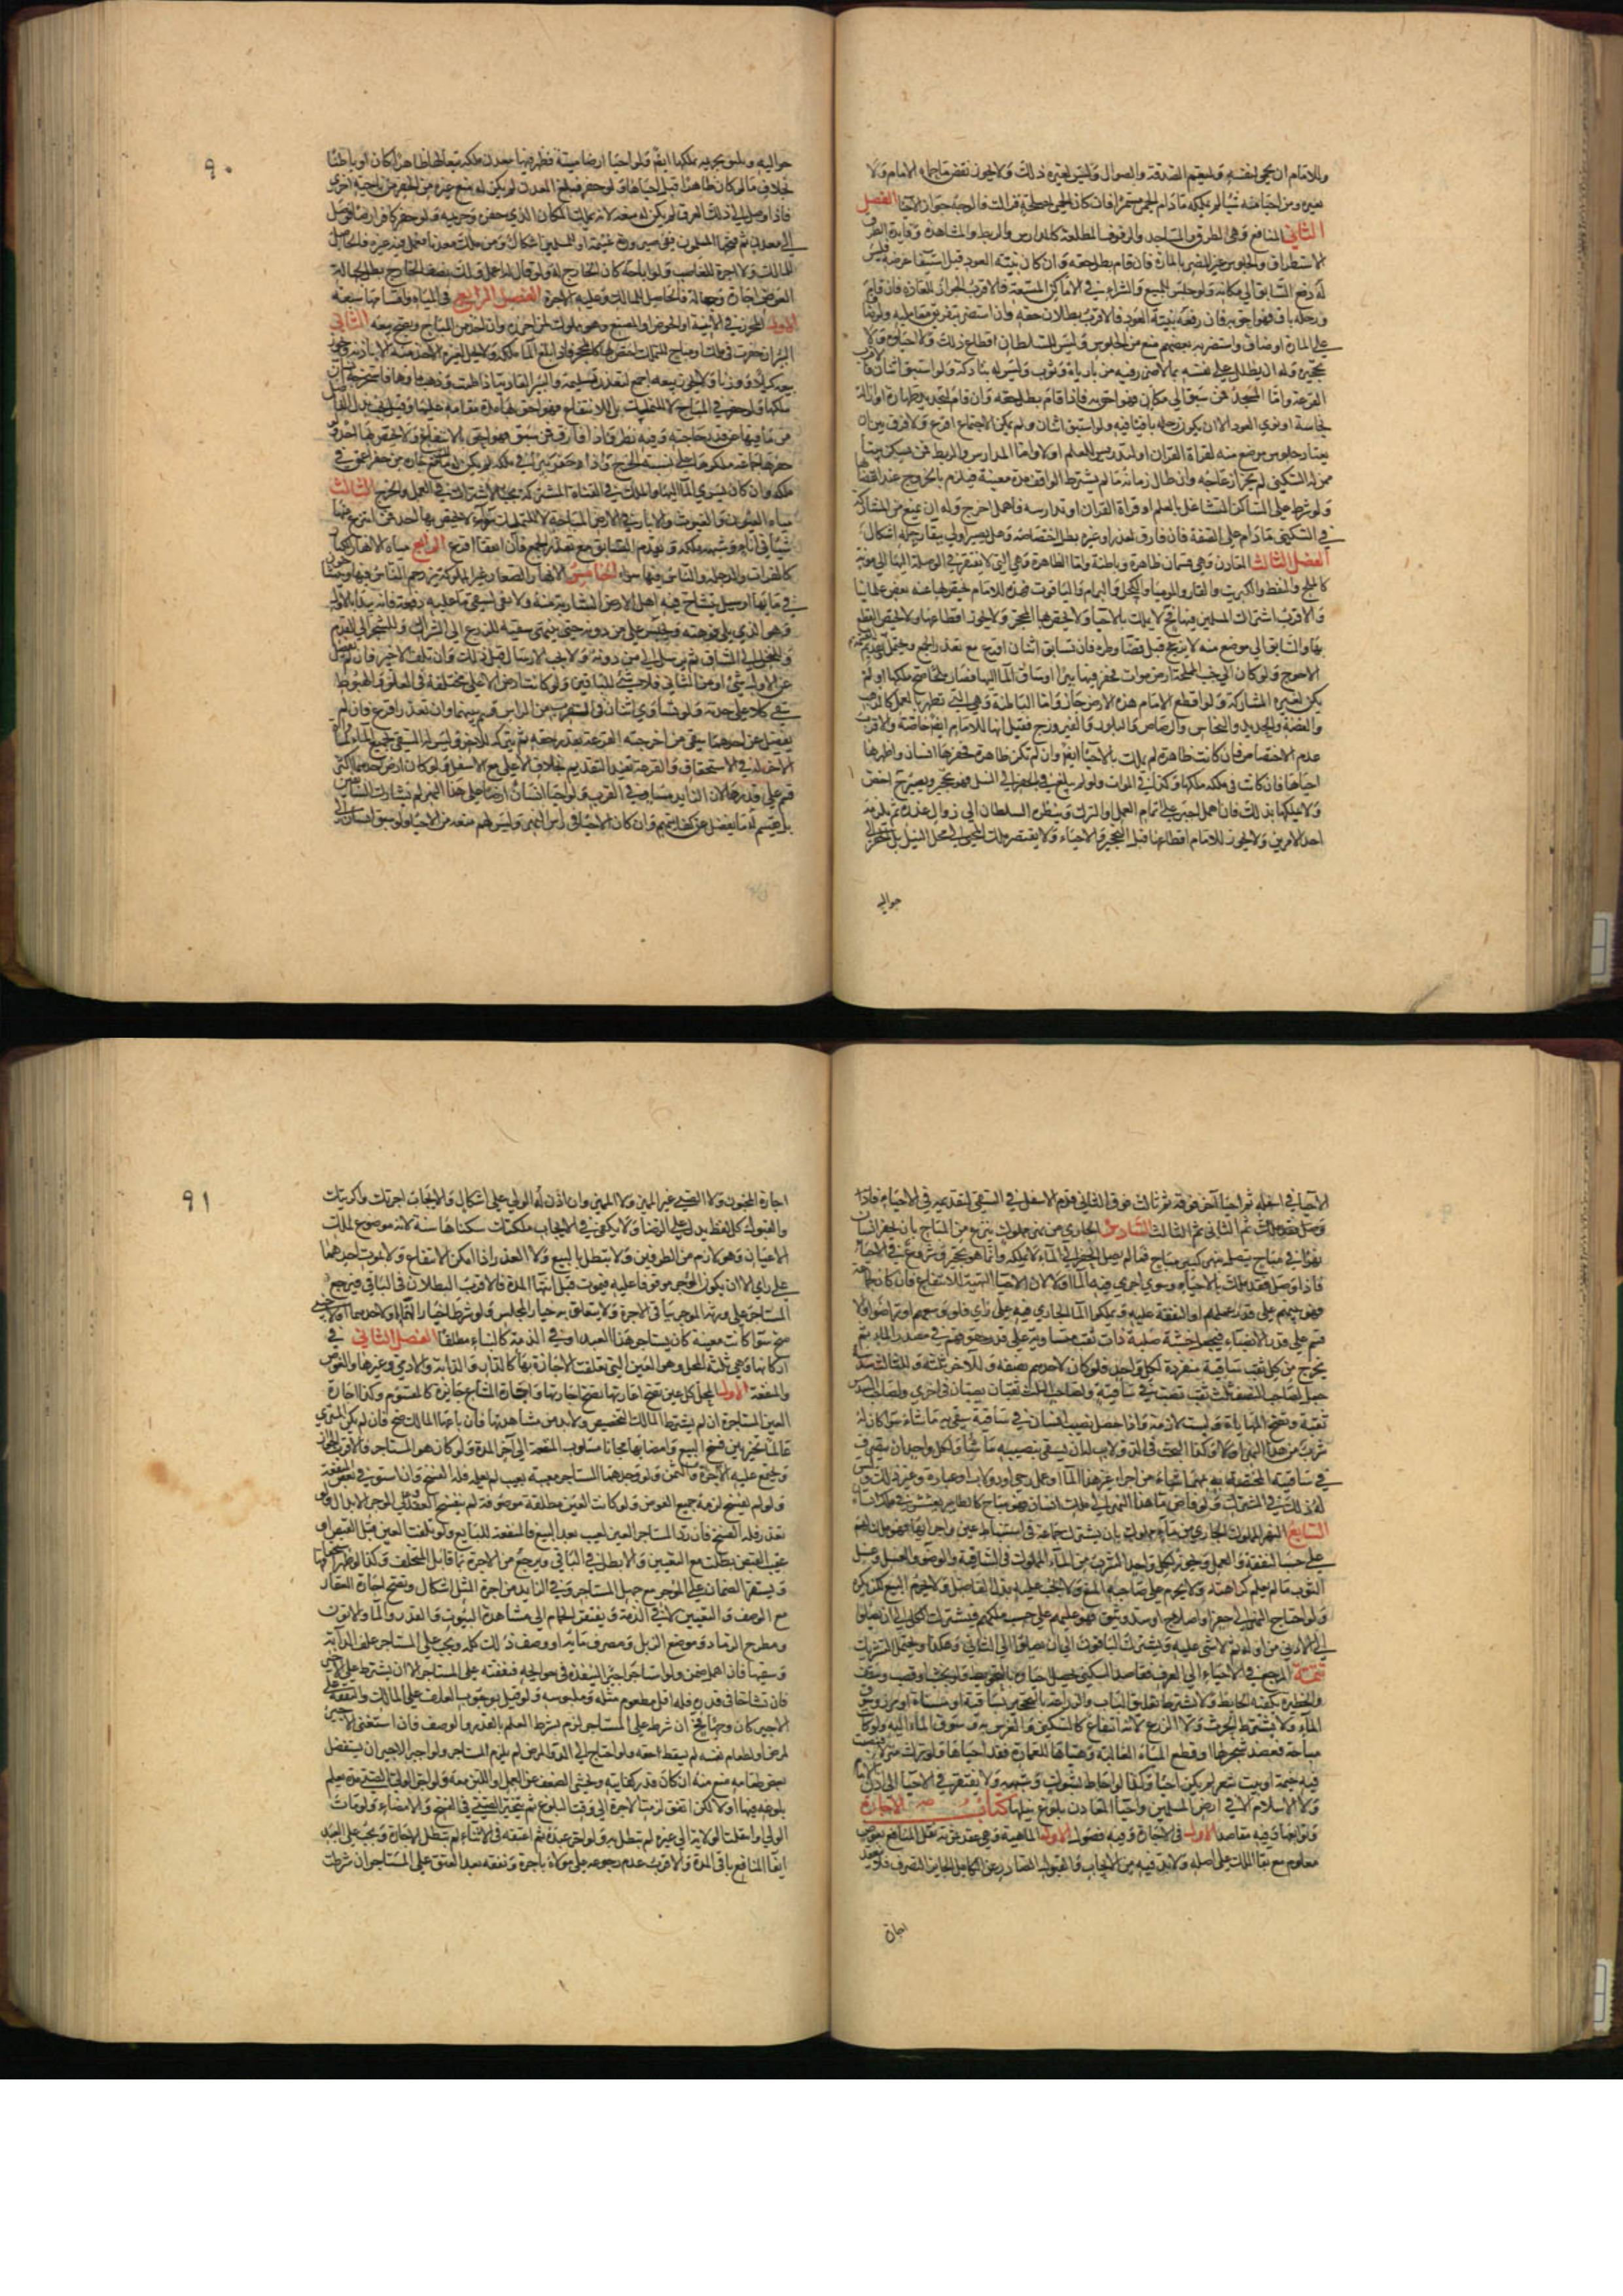 وللامام ان يحمي لنفسه ولنعم الصدقة والضوال وليس لغيره ذلك ولا يجوز نقض ما حماه الامام ولا
تغييره ومن احيا منه شيئا لم يملكه مادام الحمى مستمرا فان كان الحمى لمصلحة فزالت فالوجه جواز الاحيا الفصل
الثاني المنافع وهي الطرق والمساجد والوقوف المطلقة كالمدارس والربط والمشاهد وفايدة الطرق
الاستطراق والجلوس غير المضر بالمارة فان قام بطل حقه وان كان بنية العود قبل استيفا غرضه فليس
له دفع السابق الى مكانه ولو جلس للبيع والشراء في الاماكن المتسعة فالاقرب الجواز للعادة فان قام
ورحله باق فهو احق به فان رفعه بنية العود فالاقرب بطلان حقه وان استضر بتفريق معامليه
على المارة او ضاق واستضر به بعضهم منع من الجلوس وليس للسلطان اقطاع ذلك ولا احياؤه ولا
تحجيره وله ان يظلل على نفسه بما لا ضرر فيه من بارية وثوب وليس له بنا دكة ولو استبق اثنان
القرعة واما المسجد فمن سبق الى مكان فهو احق به فاذا قام بطل حقه وان قام لتجديد طهارة او ازالة
نجاسة او نوى العود الا ان يكون رحله باقيا فيه ولو استبق اثنان ولم يمكن الاجتماع اقرع ولا فرق بين ان
يعتاد جلوس موضع منه لقراة القران او لتدريس العلم او لا واما المدارس والربط فمن سكن بيتا
ممن له السكنى لم يجز ازعاجه وان طال زمانه ما لم يشترط الواقف مدة معينة فيلزم بالخروج عند انقضائها
ولو شرط على الساكن التشاغل بالعلم او قراة القران او تدارسه فاهمل اخرج وله ان يمنع من المشاركة
في السكنى مادام على الصفة فان فارق لعذر او غيره بطل اختصاصه وهل يصير اولى ببقاء رحله اشكال
الفصل الثالث المعادن وهي قسمان ظاهرة وباطنة واما الظاهرة وهي التي لا تفتقر في الوصلة اليها الى مؤنة
كالملح والنفط والكبريت والقار والمومياء والكحل والبرام والياقوت فهذه للامام خيقر بها عند بعض علمائنا
والاقرب اشتراك المسلمين فيها فح لا يملك بالاحيا ولا يختص بها المحجر ولا يجوز اقطاعها ولا يختص المقطع
بها والسابق الى موضع منه لا يزعج قبل قضا وطره فان تسابق اثنان اقرع مع تعذر الجمع ويحتمل
الاحوج ولو كان الى جنب المملحة ارض موات فحفر فيها بيرا وساق الما اليها فصار ملحا صح ملكها ولم
يكن لغيره المشاركة ولو اقطع الامام هذه الارض جاز واما الباطنة وهي التي تظهر بالعمل كالذهب
والفضة والحديد والنحاس والرصاص والبلور والفيروزج فقيل انها للامام ايضا خاصة والاقرب
عدم الاختصاص فان كانت ظاهرة لم يملك بالاحيا ايضا وان لم تكن ظاهرة فحفرها انسان واظهرها
احياها فان كانت في ملكه ملكها وكذا في الموات ولو لم يبلغ بالحفر الى النيل فهو تحجير ويصير ح اخص
ولا يملكها بذلك فان اهمل اجبر على اتمام العمل او الترك وينظره السلطان الى زوال عذره ثم يلزمه
احد الامرين ولا يجوز للامام اقطاعها قبل التحجير والاحياء ولا يقتصر ملك المحيي في محل النيل بل
حواليه
٩٠
حواليه ويليق بحريمه يملكها ايضا ولو احيا ارضا ميتة فظهر فيها معدن ملكه تبعا لها ظاهرا كان او باطنا
بخلاف ما لو كان ظاهرا قبل احياها ولو حفر فبلغ المعدن لم يكن له منع غيره من الحفر من ناحية اخرى
فاذا وصل الى ذلك العرق لم يكن له منعه لانه يملك المكان الذي حفره وحريمه ولو حفر كافر ارضا فوصل
الى معدن ثم فتحها المسلمون ففي صيرورته غنيمة او للمسلمين اشكال ومن ملك معدنا فعمل فيه غيره فالحاصل
للمالك ولا اجرة للغاصب ولو اباحه كان الخارج له ولو قال له اعمل ولك نصف الخارج بطل لجهالة
العوض اجارة وجعالة فالحاصل للمالك وعليه الاجرة الفصل الرابع في المياه واقسامها سبعة
الاول المحرز في الانية او الحوض او المصنع وهو مملوك لمن احرزه وان اخذ من المباح ويصح بيعه الثاني
البئر ان حفرت في ملك او مباح للتملك اختص بها كالمحجر فاذا بلغ الما ملكه ولا يحل لغيره الاخذ منه الا باذنه ويجوز
بيعه كيلا ووزنا ولا يجوز بيعه اجمع لتعذر تسليمه والبئر العادية اذا طمت وذهب ماؤها فاستخرجه انسان
ملكها ولو حفر في المباح لا للتملك بل للانتفاع فهو احق بها مدة مقامه عليها وقيل يجب بذل الفاضل
من مائها عن قدر حاجته وفيه نظر واذا فارق فمن سبق فهو احق بالانتفاع ولا يختص بها احد ولو
حفرها جماعة ملكوها على نسبة الخرج واذا حفر بيرا في ملكه لم يكن له منع جاره من حفر اعمق في
ملكه وان كان يسري الماء اليها والملك في القناة المشتركة بحسب الاشتراك في العمل والخرج الثالث
مياه العيون والغيوث والابار في الارض المباحة لا للتملك سواء لا يختص بها احد فمن انتزع منها
شيئا في اناء وشبهه ملكه ويقدم السابق مع تعذر الجمع فان اتفقا اقرع الرابع مياه الانهار الكبار
كالفرات والدجلة والناس فيها سواء الخامس الانهار الصغار غير المملوكة يزدحم الناس فيها
في مائها او سيل يتشاح فيه اهل الارض المشاربة منه ولا يفي لسقي ما عليه دفعة فانه يبدا بالاول
وهو الذي يلي فوهته ويحبس على من دونه حتى ينتهي سقيه للزرع الى الشراك وللشجر الى القدم
وللنخل الى الساق ثم يرسل الى من دونه ولا يجب الارسال قبل ذلك وان تلف الاخير فان لم يفضل
عن الاول شيء او من الثاني فلا حق للباقين ولو كانت ارض الاعلى مختلفة في العلو والهبوط
سقى كلا على حدته ولو تساوى اثنان في القرب من الراس قسم بينهما وان تعذر اقرع فان لم
يفضل عن احدهما سقى من اخرجته القرعة بقدر حقه ثم يتركه للاخر وليس له السقي بجميع الماء
الاخر له في الاستحقاق والقرعة تفيد التقديم بخلاف الاعلى مع الاسفل ولو كان ارض احدهما اكثر
قسم على قدرها لان الزايد مساو في القرب ولو احيا انسان ارضا على هذا النهر لم يشارك السابقين
بل يقسم له ما يفضل عن كفايتهم وان كان الاحيا في راس النهر وليس لهم منعه من الاحيا ولو سبق انسان الى
الاحيا في اسفله ثم احيا اخر فوقه ثم ثالث فوق الثاني قدم الاسفل في السقي لتقدمه في الاحياء فاذا
ثم الثاني ثم الثالث السادس الجاري من نهر مملوك ينتزع من المباح بان يحفر انسان
نهرا في مباح يتصل بنهر كبير مباح فما لم يصل الحفر الى الماء لا يملكه وانما هو تحجير وشروع في الاحيا
فاذا وصل فقد ملك بالاحياء وسوى اجري فيه الما او لا لان الاحيا التهية للانتفاع فان كانوا جماعة
فهو بينهم على قدر عملهم او النفقة عليه ويملكون الما الجاري فيه على راي فلو وسعهم او تراضوا والا
قسم على قدر الانصباء فيجعل خشبة صلبة ذات ثقب متساوية على قدر حقوقهم في مصدر الماء ثم
يخرج من كل ثقب ساقية منفردة لكل واحد فلو كان لاحدهم نصفه وللاخر ثلثه وللثالث سدسه
جعل لصاحب النصف ثلث ثقب تصب في ساقيته ولصاحب الثلث ثقبان يصبان في اخرى ولصاحب السدس
ثقبة وتصح المهاياة وليست لازمة واذا حصل نصيب انسان في ساقيته سقى به ما شاء سوا كان له
شرب من هذا النهر او لا وكذا البحث في الدولاب له ان يسقي بنصيبه ما شا ولكل واحد ان يتصرف
في ساقيته المختصة به بمهما شاء من اجراء غير هذا الما او عمل رحى او دولاب او عبارة وغير ذلك وليس
له ذلك في المشترك ولو فاض ماء هذا النهر الى ملك انسان فهو مباح كالطاير يعشش في ملك انسان
السابع النهر المملوك الجاري من ماء مملوك بان يشترك جماعة في استنباط عين واجرائها فهو ملك لهم
على حسب النفقة والعمل ويجوز لكل واحد الشرب من الماء المملوك في الساقية والوضوء والغسل وغسل
الثوب ما لم يعلم كراهته ولا يحرم على صاحبه المنع ولا يجب عليه بذل الفاضل ولا يحرم البيع لكن يكره
ولو احتاج النهر الى حفر او اصلاح او سد بثق فهو عليهم على حسب ملكهم فيشترك الكل الى ان يصلوا
الى الاول ثم لا شي عليه ويشترك الباقون الى ان يصلوا الى الثاني وهكذا ويحتمل التشريك
تتمة المرجع في الاحياء الى العرف فقاصد السكنى يحصل احياؤه بالتحويط ولو بخشب او قصب وسقف
والحظيرة يكفيه الحايط ولا يشترط تعليق الباب والزراعة بالتحجير بساقية او مسناة او مرز وسوق
الماء ولا يشترط الحرث ولا الزرع لانه انتفاع كالسكنى والغرس به وسوق الماء اليه ولو كانت
مباحة فعضد شجرها او قطع المياه الغالبة وهياها للعمارة فقد احياها ولو ترك منزلا فنصب
فيه خيمة او بيت شعر لم يكن احياء وكذا لو احاط بشوك وشبهه ولا يفتقر في الاحيا الى اذن الامام
ولا الاسلام الا في ارض المسلمين واحيا المعادن بلوغ نيلها كتاب الاجارة
وتوابعها وفيه مقاصد الاول في الاجارة وفيه فصول الاول الماهية وهي عقد ثمرته نقل المنافع بعوض
معلوم مع بقا الملك على اصله ولا بد فيه من الايجاب والقبول الصادر عن الكامل الجايز التصرف فلا
اجارة
٩١
اجارة المجنون ولا الصبي غير المميز ولا المميز وان اذن له الولي على اشكال والايجاب اجرتك واكريتك
والقبول كل لفظ يدل على الرضا ولا يكفي في الايجاب ملكتك سكناها سنة لانه موضوع لملك
الاعيان وهو لازم من الطرفين ولا يبطل بالبيع ولا العذر اذا امكن الانتفاع ولا بموت احدهما
على راي الا ان يكون المؤجر موقوفا عليه فيموت قبل انتهاء المدة فالاقرب البطلان في الباقي فيرجع
المستاجر على ورثة الموجر بباقي الاجرة ولا يتعلق به خيار المجلس ولو شرط الخيار لهما او لاحدهما
صح سوا كانت معينة كان يستاجر هذا العبد او في الذمة كالبناء مطلقا الفصل الثاني في
اركانها وهي ثلثة المحل وهو العين التي تعلقت الاجازة بها كالدار والدابة والادمي وغيرها والعوض
والمنفعة الاول المحل كل عين تصح اعارتها تصح اجارتها واجارة المشاع جايزة كالمقسوم وكذا اجارة
العين المستاجرة ان لم يشترط المالك التخصيص ولا بد من مشاهدتها فان باعها المالك صح فان لم يكن المشتري
عالما تخير بين فسخ البيع وامضائه مجانا مسلوب المنفعة الى اخر المدة ولو كان هو المستاجر فالاقرب الجواز
ويجتمع عليه الاجرة والثمن ولو وجدها المستاجر معيبة بعيب لم يعلمه فله الفسخ وان استوفى بعض المنفعة
ولو لم يفسخ لزمه جميع العوض ولو كانت العين مطلقة موصوفة لم ينفسخ العقد وعلى الموجر الابدال ولو
تعذر فله الفسخ فان رد المستاجر العين لعيب بعد البيع فالمنفعة للبايع ولو تلفت العين قبل القبض او
عقيب القبض بطلت مع التعيين والا بطل في الباقي ويرجع من الاجرة بما قابل المتخلف
ويستقر الضمان على المؤجر مع جهل المستاجر وفي الزايد من اجرة المثل اشكال وتصح اجارة العقار
مع الوصف والتعيين لا في الذمة ويفتقر الحمام الى مشاهدة البيوت والقدر والماء والاتون
ومطرح الرماد وموضع الزبل ومصرف مائه او وصف ذلك كله ويجب على المستاجر علف الدابة
وسقيها فان اهمل ضمن ولو استاجر اجيرا لينفذه في حوايجه فنفقته على المستاجر الا ان يشترط على الاجير
فان تشاحا في قدره فله اقل مطعوم مثله وملبوسه ولو قيل بوجوب العلف على المالك والنفقة على
الاجير كان وجها فح ان شرط على المستاجر لزم بشرط العلم بالقدر والوصف فان استغنى الاجير
لمرض او لطعام نفسه لم يسقط حقه ولو احتاج الى الدواء لمرض لم يلزم المستاجر ولو اجبر الاجير ان يستفضل
بعض طعامه منع منه ان كان قدر كفايته وخشى الضعف عن العمل او اللبن معه ولو اجر الولي الصبي مدة يعلم
بلوغه فيها او لا لكن اتفق لزمت الاجرة الى وقت البلوغ ثم يتخير الصبي في الفسخ والامضاء ولو مات
الولي او انتقلت الولاية الى غيره لم تبطل به ولو اجر عبده ثم اعتقه في الاثناء لم تبطل الاجارة ويجب على العبد
ايفا المنافع باقي المدة والاقرب عدم رجوعه على مولاه باجرة ونفقته بعد العتق على المستاجر ان شرطت